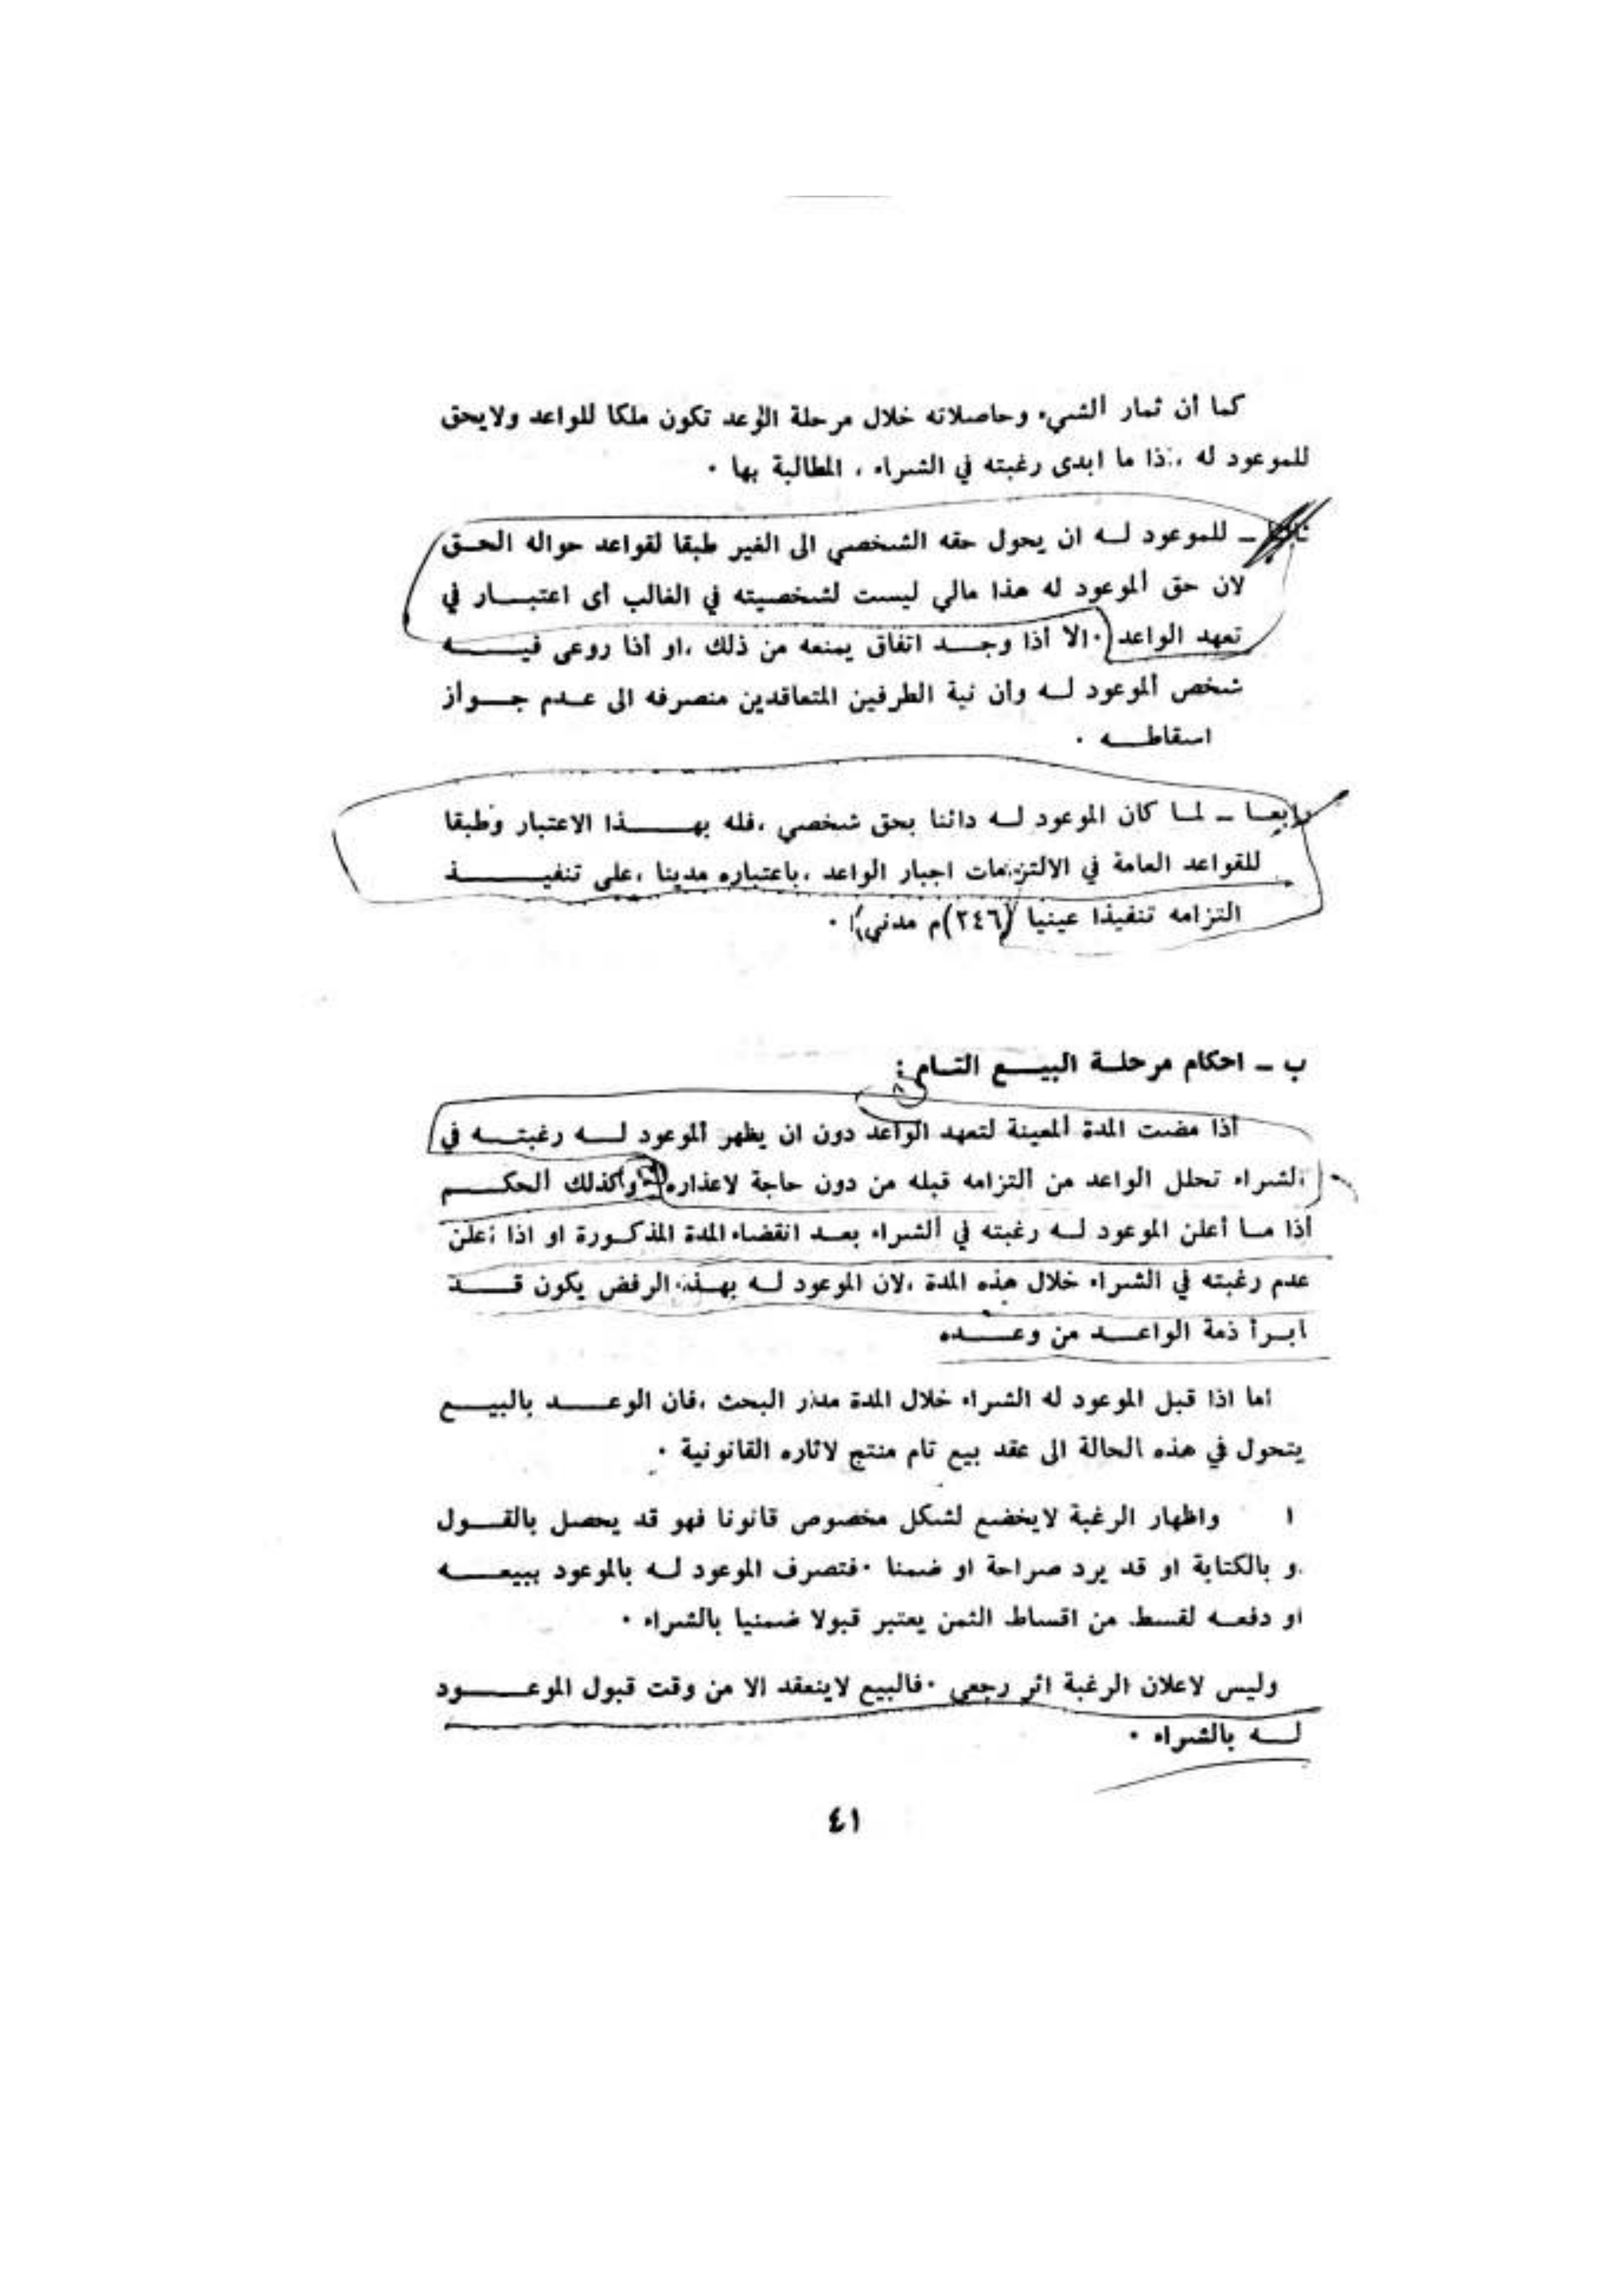 كما أن ثمار الشيء وحاصلاته خلال مرحلة الوعد تكون ملكا للواعد ولايحق
للموعود له ، إذا ما ابدى رغبته في الشراء ، المطالبة بها ٠
ـ للموعود لـه ان يحول حقه الشخصي الى الغير طبقا لقواعد حواله الحـق
لان حق الموعود له هذا مالي ليست لشخصيته في الغالب أى اعتبـار في
تعهد الواعد ٠ الا أذا وجـد اتفاق يمنعه من ذلك ،او أذا روعى فيـه
شخص الموعود لـه وان نية الطرفين المتعاقدين منصرفه الى عـدم جـواز
اسقاطـه ٠
رابعـا ـ لمـا كان الموعود لـه دائنا بحق شخصي ،فله بهـذا الاعتبار وطبقا
للقواعد العامة في الالتزامات اجبار الواعد ،باعتباره مدينا ،على تنفيـذ
التزامه تنفيذا عينيا (٢٤٦)م مدني ٠
ب ـ احكام مرحلـة البيـع التـام :
أذا مضت المدة المعينة لتعهد الواعد دون ان يظهر الموعود لـه رغبتـه في
الشراء تحلل الواعد من التزامه قبله من دون حاجة لاعذاره وكذلك الحكـم
أذا مـا أعلن الموعود لـه رغبته في الشراء بعـد انقضاء المدة المذكـورة او اذا أعلن
عدم رغبته في الشراء خلال هذه المدة ،لان الموعود لـه بهـذا الرفض يكون قـد
ابـرأ ذمة الواعـد من وعـده
اما اذا قبل الموعود له الشراء خلال المدة مدار البحث ،فان الوعـد بالبيـع
يتحول في هذه الحالة الى عقد بيع تام منتج لاثاره القانونية ٠
١ واظهار الرغبة لايخضع لشكل مخصوص قانونا فهو قد يحصل بالقـول
و بالكتابة او قد يرد صراحة او ضمنا ٠فتصرف الموعود لـه بالموعود ببيعـه
او دفعـه لقسط من اقساط الثمن يعتبر قبولا ضمنيا بالشراء ٠
وليس لاعلان الرغبة اثر رجعى ٠فالبيع لاينعقد الا من وقت قبول الموعـود
لـه بالشراء ٠
٤١